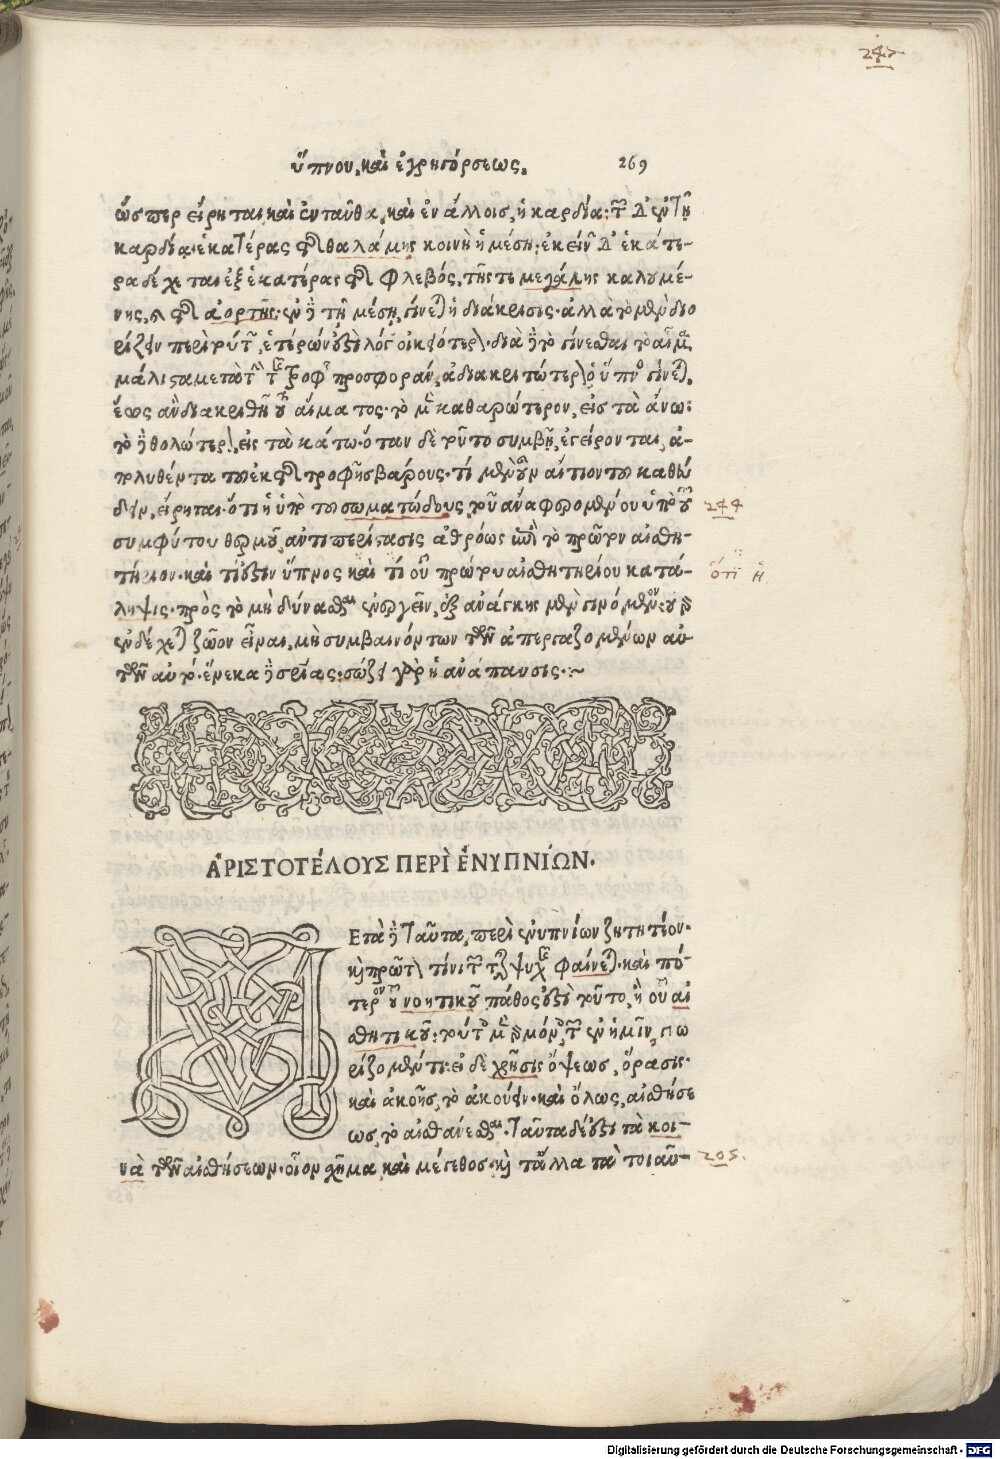 247
ὕπνου, καὶ ἐγρηγόρσεως. 269
ὥσπερ εἴρηται καὶ ἐνταῦθα, καὶ ἐν ἄλλοις, ἡ καρδία: τῶν δ' ἐν τῇ
καρδίᾳ ἑκατέρας τῆς θαλάμης κοινὴ ἡ μέση: ἐκείνων δ' ἑκάτε-
ρα δέχεται ἐξ ἑκατέρας τῆς φλεβός, τῆς τε μεγάλης καλουμέ-
νης, καὶ τῆς ἀορτῆς· ἐν δὲ τῇ μέσῃ, γίνεται ἡ διάκρισις· ἀλλὰ τὸ μὲν διο
ρίζειν περὶ τούτων, ἑτέρων ἐστὶ λόγων οἰκειότερον· διὰ δὲ τὸ γίνεσθαι τὸ αἷμα
μάλιστα μετὰ τὴν τῆς τροφῆς προσφοράν, ἀδιακριτώτερον ὁ ὕπνος γίνεται,
ἕως ἂν διακριθῇ τοῦ αἵματος· τὸ μὲν καθαρώτερον, εἰς τὰ ἄνω:
τὸ δὲ θολώτερον, εἰς τὰ κάτω· ὅταν δὲ τοῦτο συμβῇ, ἐγείρονται, ἀ-
πολυθέντα τοῦ ἐκ τῆς τροφῆς βάρους· τί μὲν οὖν αἴτιον τοῦ καθεύ
δειν, εἴρηται· ὅτι ἡ ὑπὸ τοῦ σωματώδους, τοῦ ἀναφερομένου ὑπὸ τοῦ 244
συμφύτου θερμοῦ, ἀντιπερίστασις ἀθρόως ἐπὶ τὸ πρῶτον αἰσθη-
τήριον· καὶ τί ἐστιν ὕπνος καὶ τί οὗ πρώτου αἰσθητηρίου κατά- ὅτι ἡ
ληψις· πρὸς τὸ μὴ δύνασθαι ἐνεργεῖν, ἐξ ἀνάγκης μὲν γινόμενον: οὐ γὰρ
ἐνδέχεται ζῶον εἶναι, μὴ συμβαινόντων τῶν ἀπεργαζομένων αὐ-
τῶν αὐτό· ἕνεκα δὲ σωτηρίας: σώζει γὰρ ἡ ἀνάπαυσις·~
ἈΡΙΣΤΟΤΈΛΟΥΣ ΠΕΡῚ ἘΝΥΠΝΊΩΝ.
ΜΕτὰ δὲ ταῦτα, περὶ ἐνυπνίων ζητητέον·
καὶ πρῶτον τίνι τῶν τῆς ψυχῆς φαίνεται· καὶ πό-
τερον τοῦ νοητικοῦ πάθος ἐστὶ τοῦτο, ἢ τοῦ αἰ
σθητικοῦ: τούτοις μὲν γὰρ μόνοις τῶν ἐν ἡμῖν, γνω
ρίζομέν τι: εἰ δὲ χρῆσις ὄψεως, ὅρασις·
καὶ ἀκοῆς, τὸ ἀκούειν· καὶ ὅλως, αἰσθήσε
ως, τὸ αἰσθάνεσθαι· ταῦτα δέ ἐστι τὰ κοι-
νὰ τῶν αἰσθήσεων· οἷον σχῆμα, καὶ μέγεθος· καὶ τἄλλα τὰ τοιαῦ- 205.
Digitalisierung gefördert durch die Deutsche Forschungsgemeinschaft - DFG